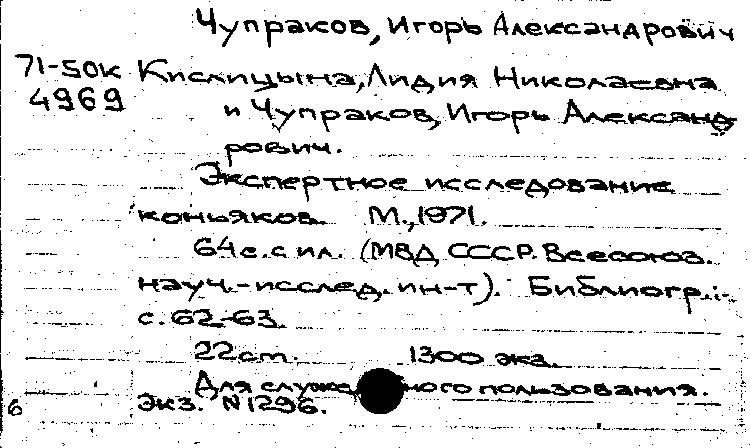 Чупраков, Игорь Александрович
71-50к Кислицына, Лидия Николаевна
4969 и Чупраков, Игорь Александ
рович.
Экспертное исследование
коньяков. М., 1971.
64 с. с ил. (МВД СССР. Всесоюз.
науч.-исслед. ин-т). Библиогр.:
с. 62-63.
22 ст. 1300 экз.
Для служебного пользования.
6 Экз. N 1296.